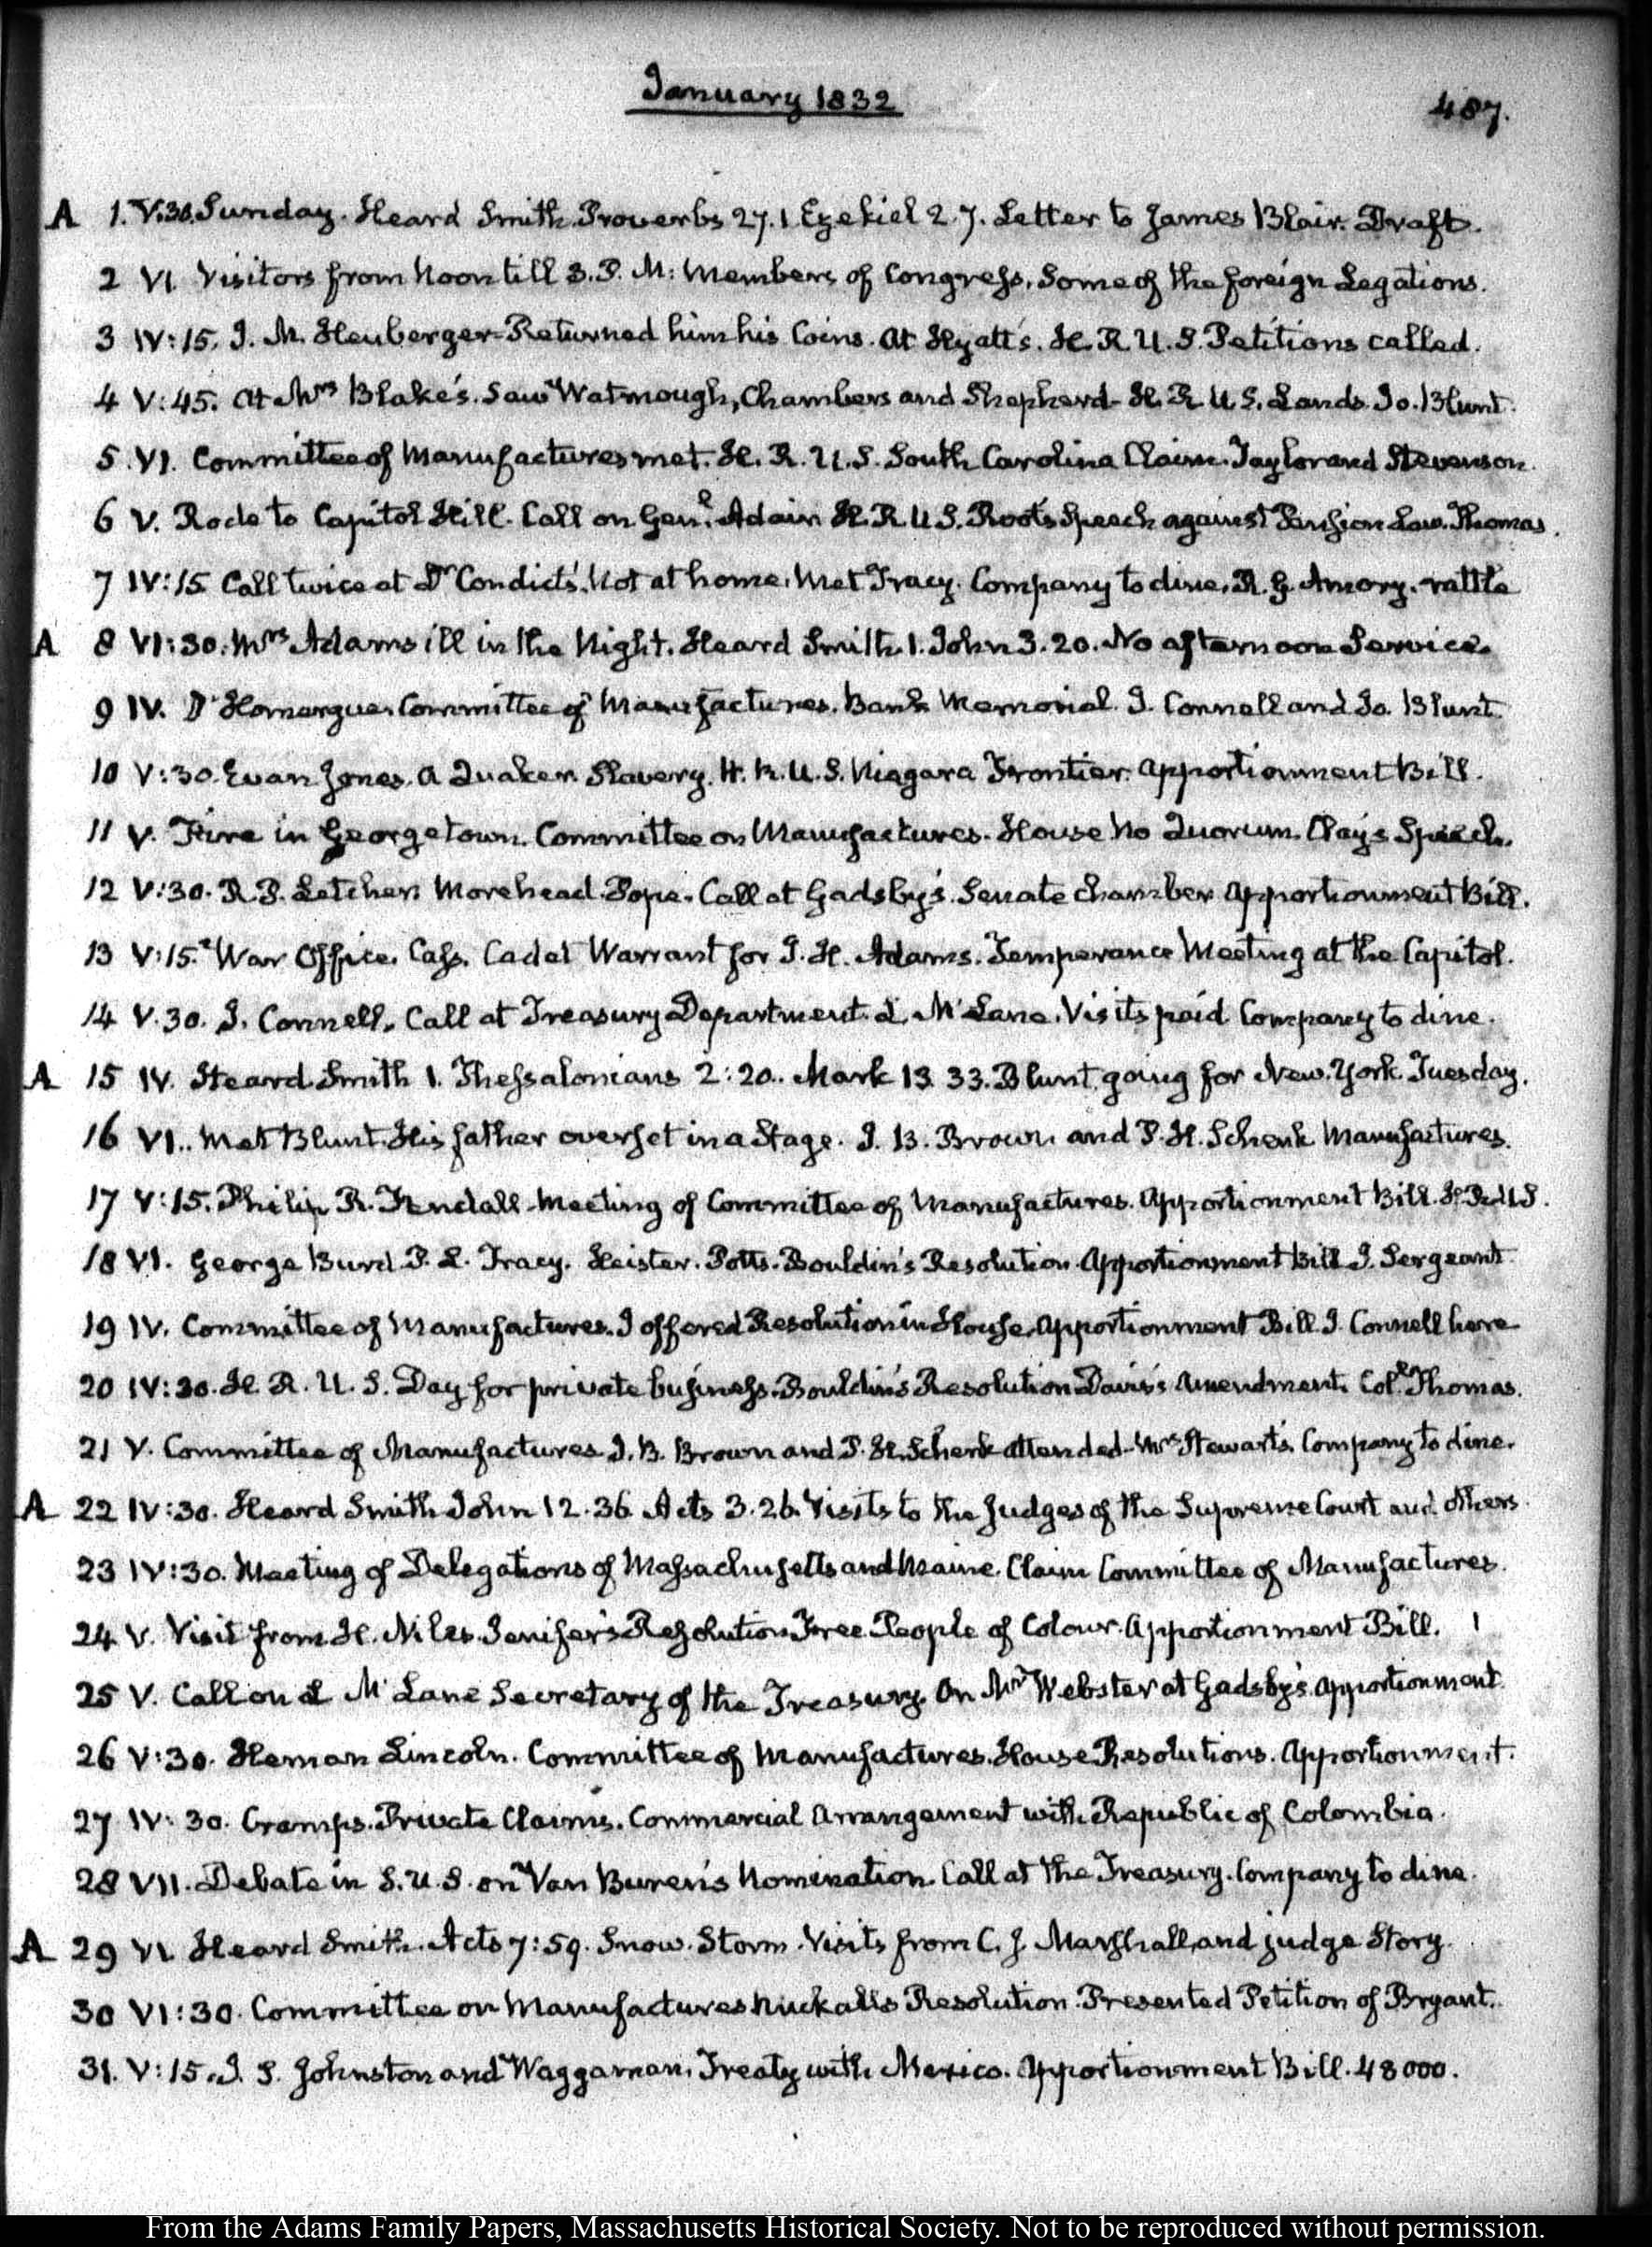 January 1832
487.
A 1. V:30. Sunday. Heard Smith. Proverbs 27.1 Ezekiel 2.7. Letter to James Blair. Draft.
2 VI. Visitors from Noon till 3. P. M: Members of Congress, Some of the foreign Legations.
3 IV:15. J. M. Heuberger Returned him his Coins. At Hyatt's. H. R. U. S. Petitions called.
4 V:45. At Mrs Blake's. Saw Watmough, Chambers and Shepherd- H. R. U S. Lands. Jo. Blunt.
5 VI. Committee of Manufactures met. H. R. U. S. South Carolina Claim. Taylor and Stevenson.
6 V. Rode to Capitol Hill. Call on Genl. Adair H. R. U S. Root's Speech against Pension Law. Thomas.
7 IV:15 Call twice at Dr Condict's. Not at home. Met Tracy. Company to dine. R. G. Amory. rattle
A 8 VI:30. Mrs Adams ill in the Night. Heard Smith. 1. John 3. 20. No afternoon Service.
9 IV. D'Homergue. Committee of Manufactures. Bank Memorial. J. Connell and Jo. Blunt.
10 V:30. Evan Jones. A Quaker. Slavery. H. R. U. S. Niagara Frontier. Apportionment Bill.
11 V. Fire in Georgetown. Committee on Manufactures. House No Quorum. Clay's Speech.
12 V:30. R. P. Letcher. Morehead. Pope. Call at Gadsby's. Senate Chamber. Apportionment Bill.
13 V:15. War Office. Cass. Cadet Warrant for J. H. Adams. Temperance Meeting at the Capitol.
14 V.30. J. Connell. Call at Treasury Department. L. McLane. Visits paid. Company to dine.
A 15 IV. Heard Smith 1. Thessalonians 2:20. Mark 13 33. Blunt going for New-York Tuesday.
16 VI. Met Blunt. His father overset in a Stage. J. B. Brown and P. H. Schenk Manufactures.
17 V:15. Philip R. Fendall. Meeting of Committee of Manufactures. Apportionment Bill. H. R. U S.
18 VI. George Burd. P. L. Tracy. Heister. Potts. Bouldin's Resolution. Apportionment Bill J. Sergeant.
19 IV. Committee of Manufactures. I offered Resolution in House. Apportionment Bill. J. Connell here
20 IV:30. H. R. U. S. Day for private business. Bouldin's Resolution Davis's Amendment. Coll. Thomas.
21 V. Committee of Manufactures J. B. Brown and P. H. Schenk attended. Mrs Stewart's. Company to dine.
A 22 IV:30. Heard Smith John 12.36. Acts 3.26. Visits to the Judges of the Supreme Court and others.
23 IV:30. Meeting of Delegations of Massachusetts and Maine. Claim Committee of Manufactures.
24 V. Visit from H. Niles. Jenifer's Resolution Free People of Colour. Apportionment Bill.
25 V. Call on L McLane Secretary of the Treasury. On Mr Webster at Gadsby's. Apportionment.
26 V:30. Heman Lincoln. Committee of Manufactures. House Resolutions. Apportionment.
27 IV:30. Cramps. Private Claims. Commercial Arrangement with Republic of Colombia.
28 VII. Debate in S. U. S. on Van Buren's Nomination. Call at the Treasury. Company to dine.
A 29 VI. Heard Smith. Acts 7:59. Snow. Storm. Visits from C. J. Marshall, and judge Story.
30 VI:30. Committee on Manufactures Nuckalls Resolution. Presented Petition of Bryant.
31. V:15. J. S. Johnston and Waggaman. Treaty with Mexico. Apportionment Bill. 48000.
From the Adams Family Papers, Massachusetts Historical Society. Not to be reproduced without permission.